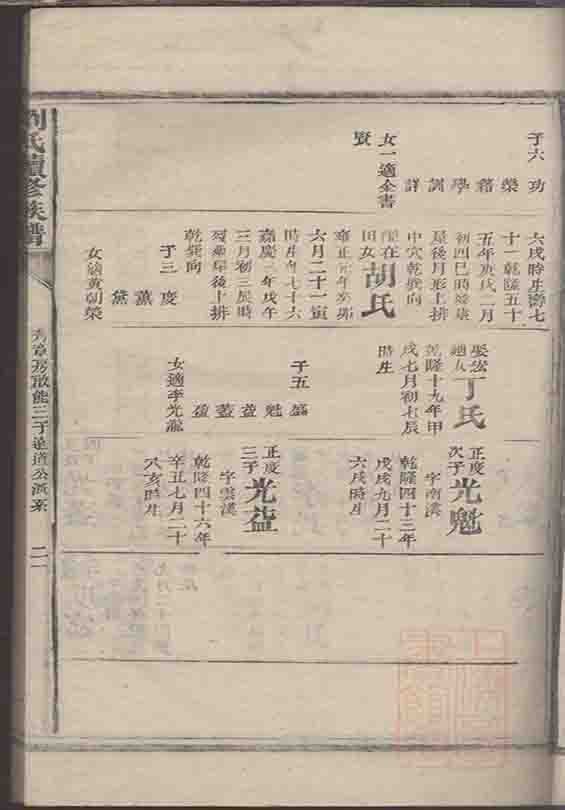 子六 功
榮
籍
學
訓
詳
女一適余書
賢
六戌時生壽七
十一乾隆五十
五年庚戌二月
初四巳時終康
屋後月形上排
中穴乾巽向
胡氏
田女
雍正元年癸卯
六月二十一寅
時生年七十六
嘉慶三年戊午
三月初三辰時
歿葬屋後上排
乾巽向
子三 度
薰
黛
女適黃朝榮
娶宏
丁氏
乾隆十九年甲
戌七月初七辰
時生
子五 盛
魁
益
蓋
盈
女適李光瀧
正度
次子
光魁
字南漢
乾隆四十三年
戊戌九月二十
六戌時生
正度
三子
光益
字雲漢
乾隆四十六年
辛丑七月二十
六亥時生
劉氏續修族譜
房敢能三子達道公派系